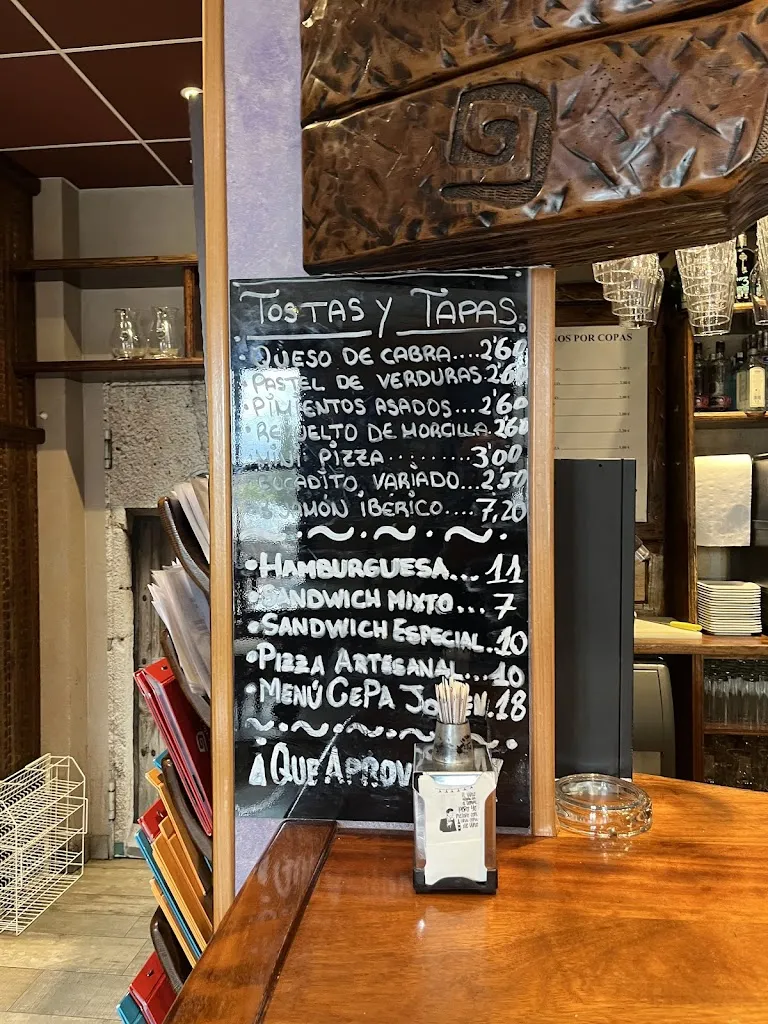 TOSTAS Y TAPAS
• QUESO DE CABRA.... 2'60
• PASTEL DE VERDURAS 2'60
• PIMIENTOS ASADOS... 2'60
• REVUELTO DE MORCILLA. 2'60
MINI PIZZA ....... 3'00
BOCADITO VARIADO... 2,50
JAMÓN IBERICO.... 7,20
• HAMBURGUESA... 11
• SANDWICH MIXTO... 7
• SANDWICH ESPECIAL.. 10
• PIZZA ARTESANAL... 10
• MENÚ CEPA JOVEN. 18
¡QUE APROV
POR COPAS